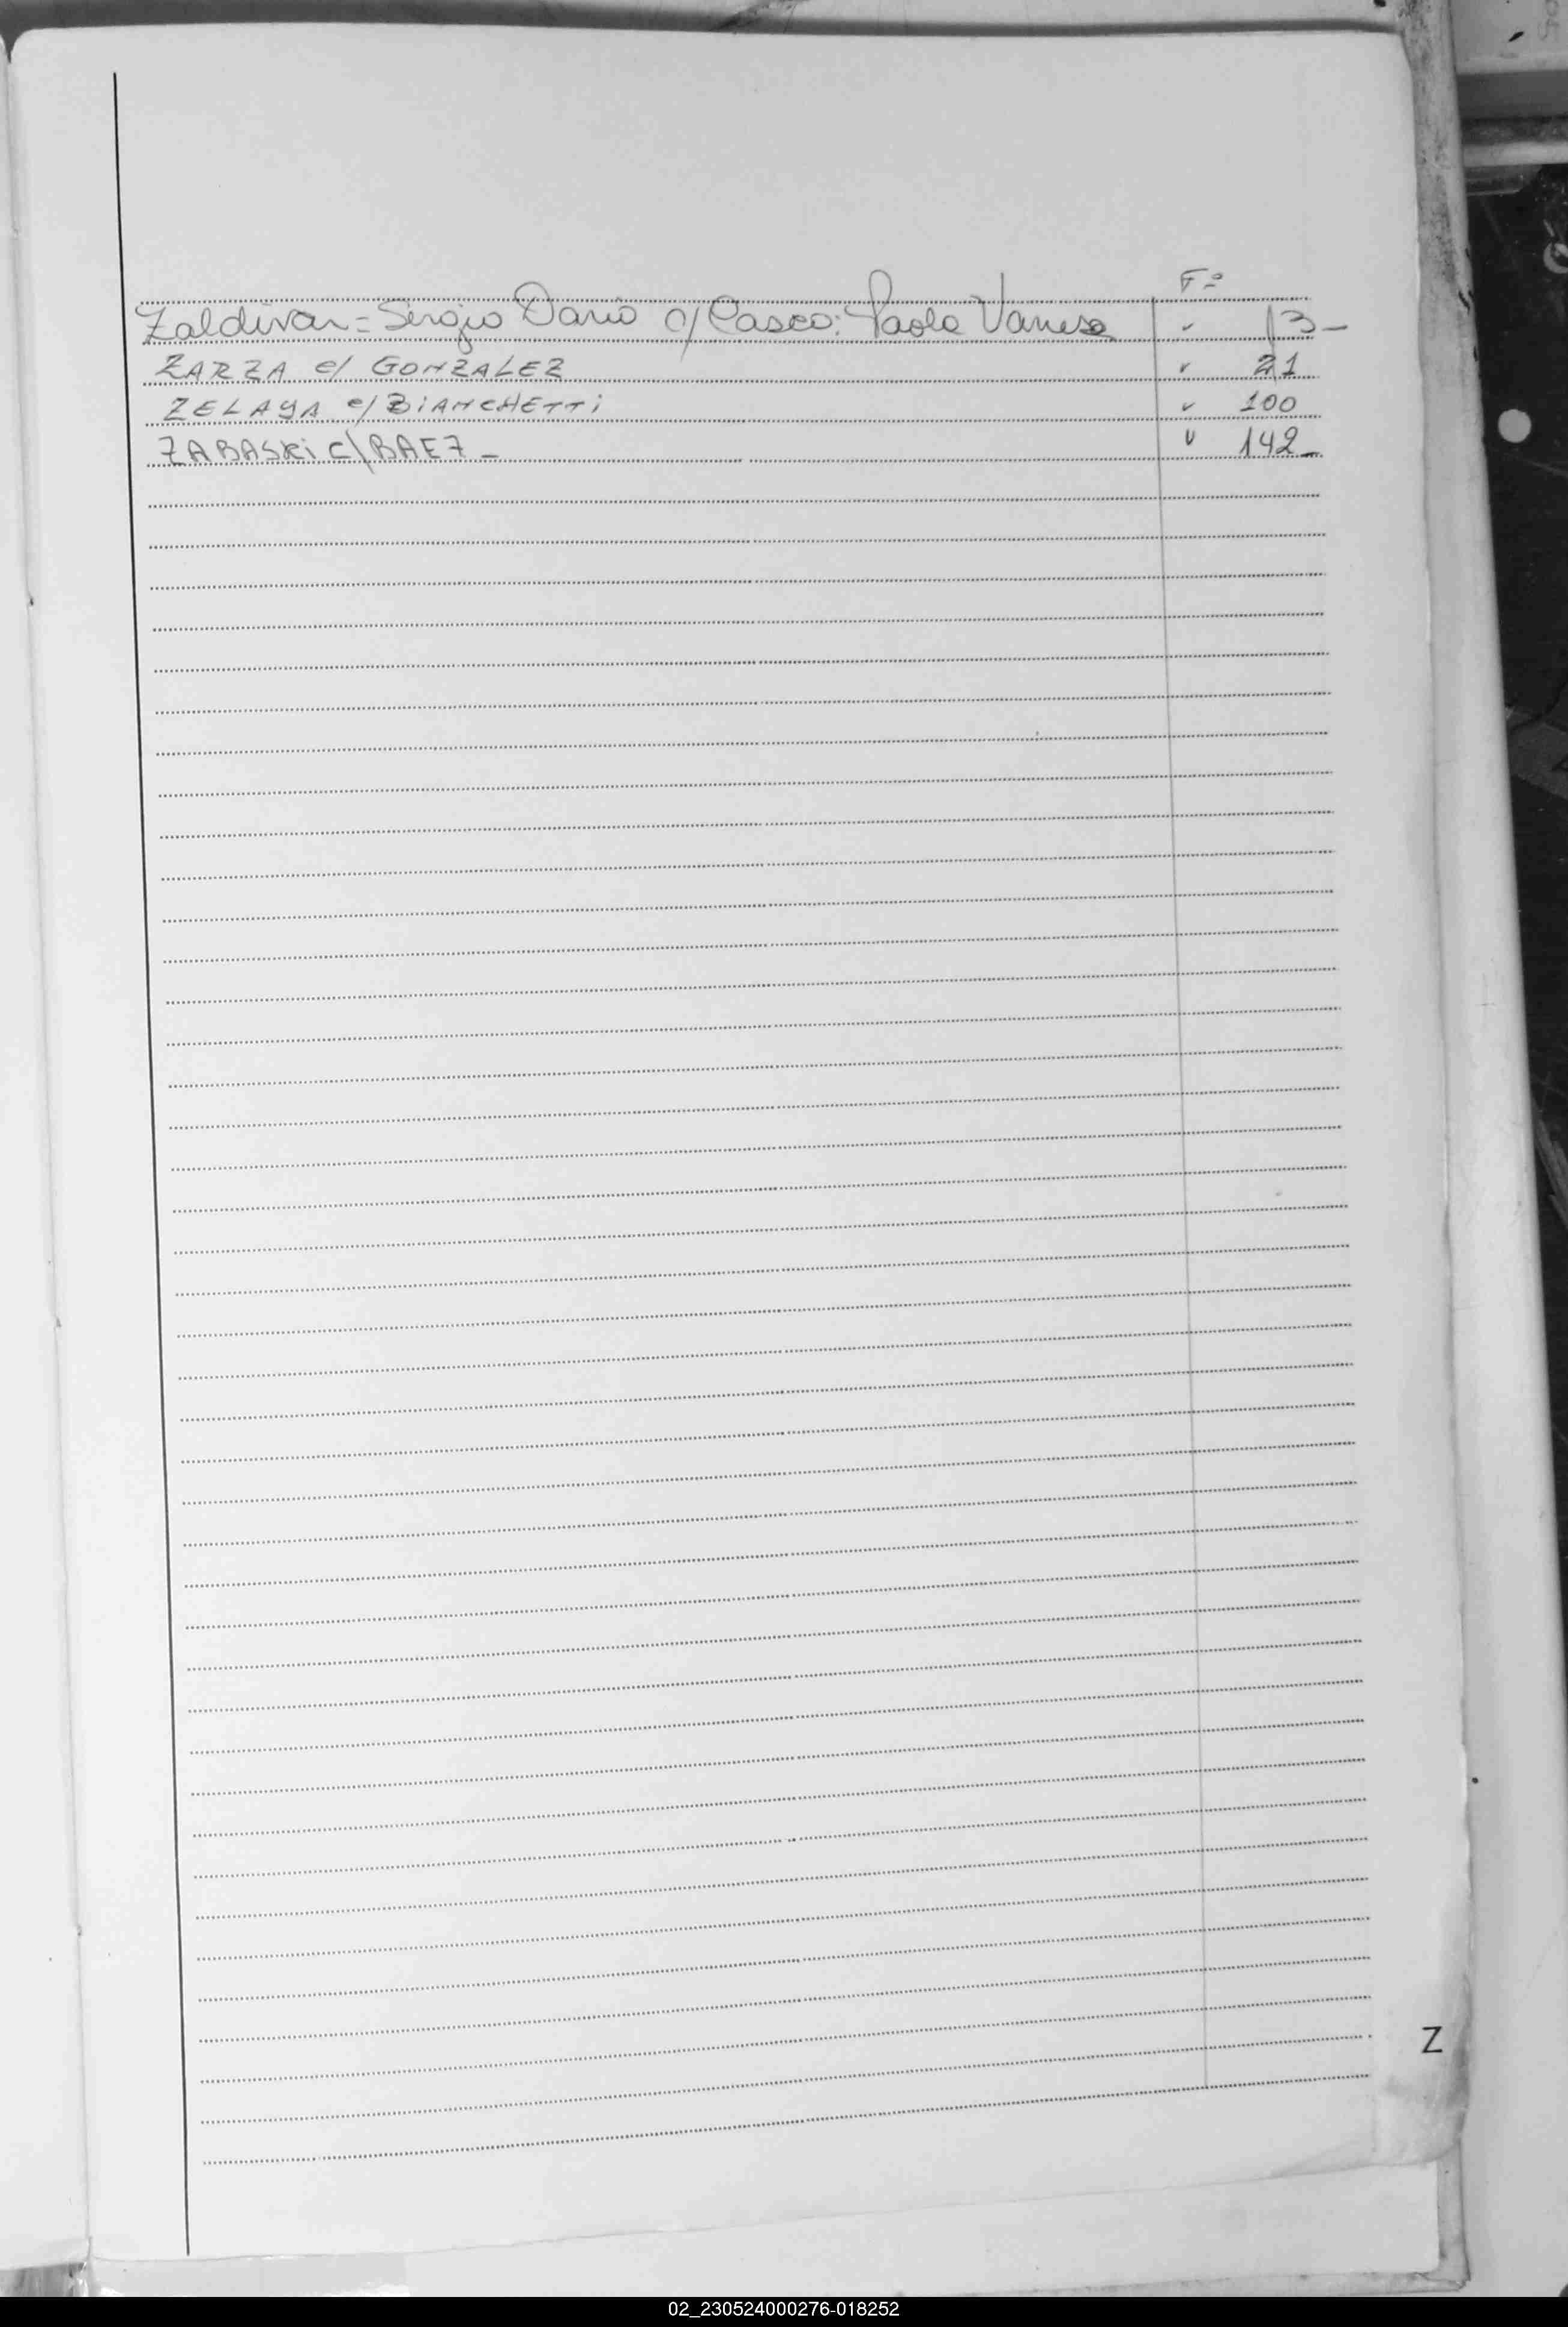 Fº
Zaldivar = Sergio Dario c/ Casco: Paola Vanesa ✓ 13-
ZARZA c/ GONZALEZ ✓ 21
ZELAYA c/ BIANCHETTI ✓ 100
ZABASKI C/ BAEZ - ✓ 142-
Z
02_230524000276-018252